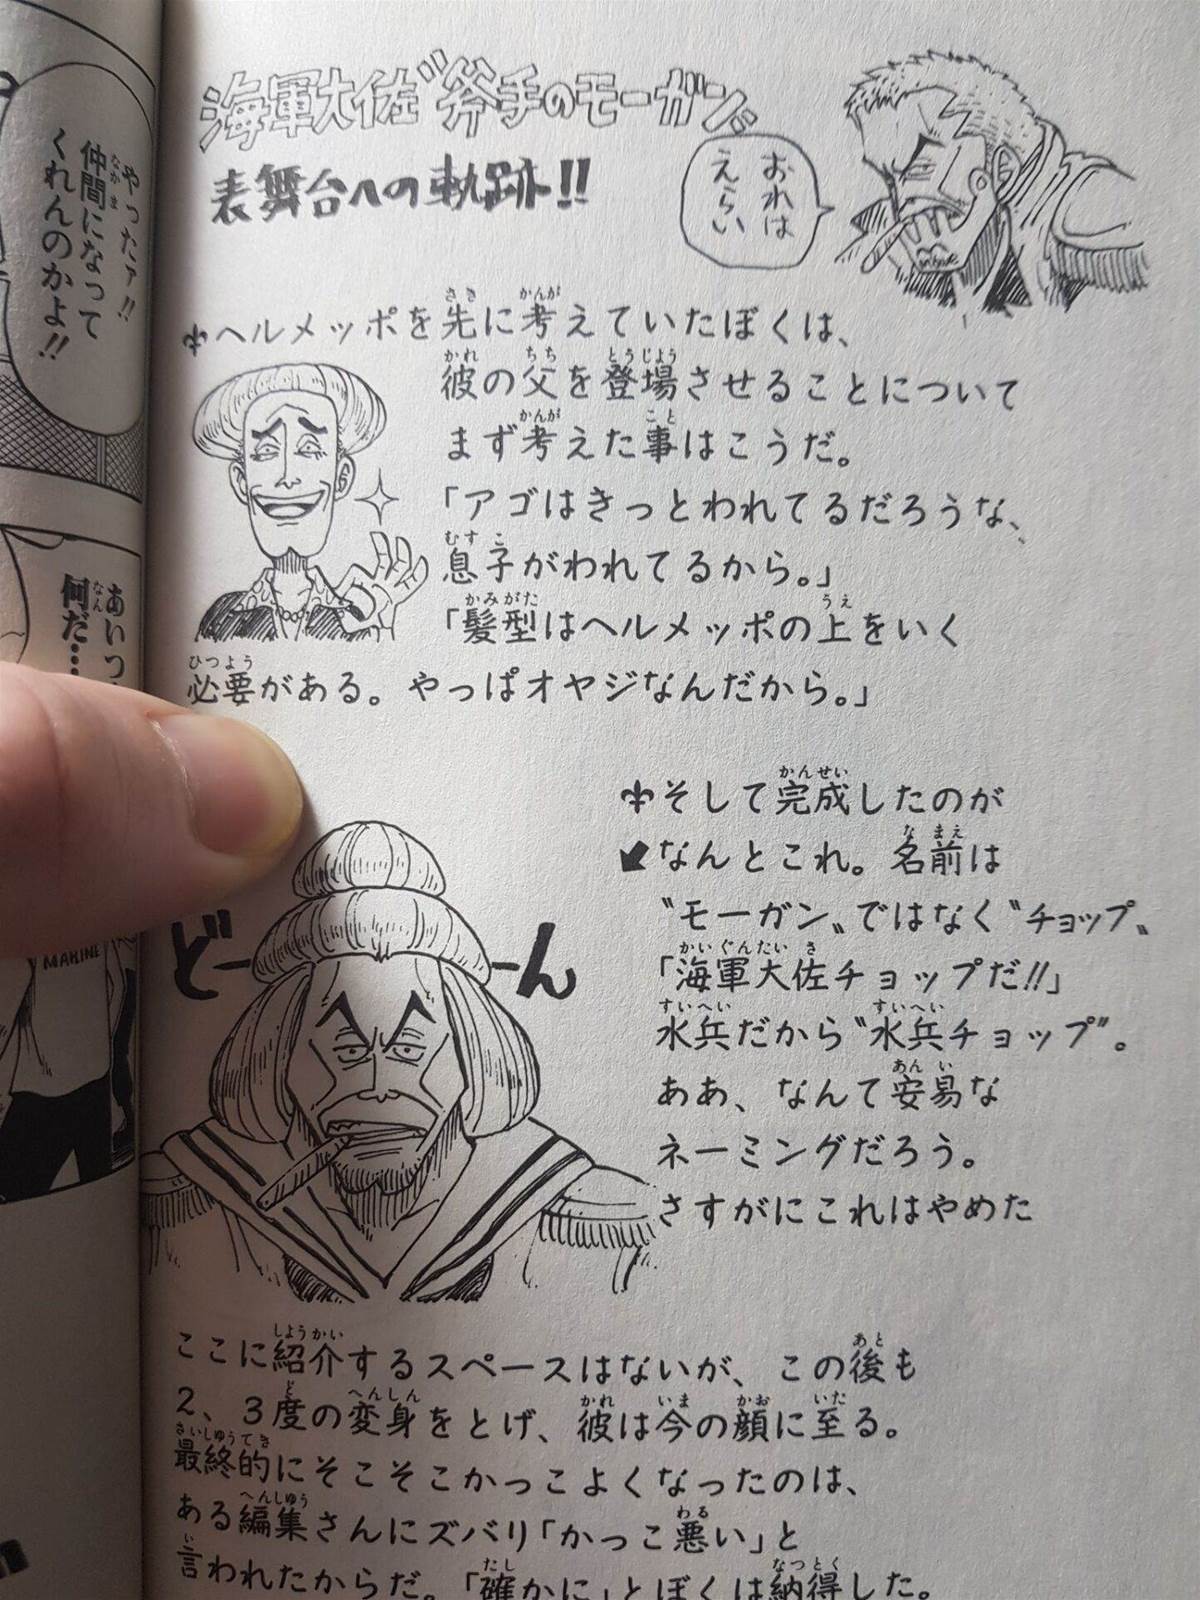 海軍大佐"斧手のモーガン"
表舞台への軌跡!!
おれは
えらい
ヘルメッポを先に考えていたぼくは、
彼の父を登場させることについて
まず考えた事はこうだ。
「アゴはきっとわれてるだろうな、
息子がわれてるから。」
「髪型はヘルメッポの上をいく
必要がある。やっぱオヤジなんだから。」
そして完成したのが
なんとこれ。名前は
〝モーガン〟ではなく〝チョップ〟
「海軍大佐チョップだ!!」
水兵だから"水兵チョップ"。
ああ、なんて安易な
ネーミングだろう。
さすがにこれはやめた
どーん
ここに紹介するスペースはないが、この後も
2、3度の変身をとげ、彼は今の顔に至る。
最終的にそこそこかっこよくなったのは、
ある編集さんにズバリ「かっこ悪い」と
言われたからだ。「確かに」とぼくは納得した。
やったァ!!
仲間になって
くれんのかよ!!
あいつ
何だ…
MARINE